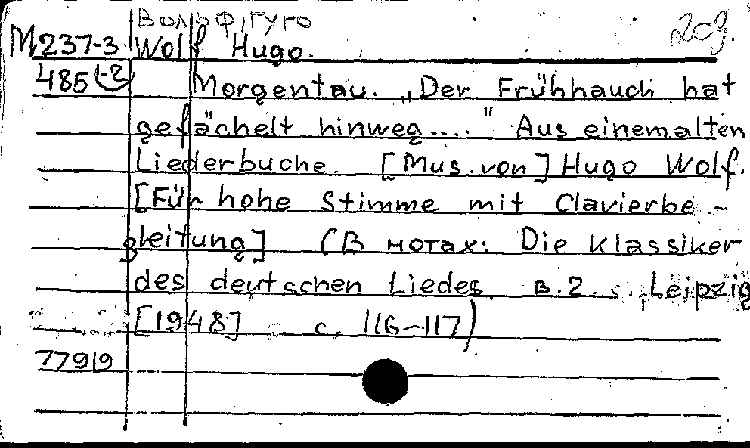 Вольф, Гуго
М 237-3 Wolf Hugo.
485(-2) Morgentau. „Der Frühhauch hat
gefächelt hinweg...." Aus einem alten
Liederbuche. [Mus. von] Hugo Wolf.
[Für hohe Stimme mit Clavierbe-
gleitung] (В нотах: Die Klassiker
des deutschen Liedes. B.2. Leipzig
[1948] с. 116-117)
77919